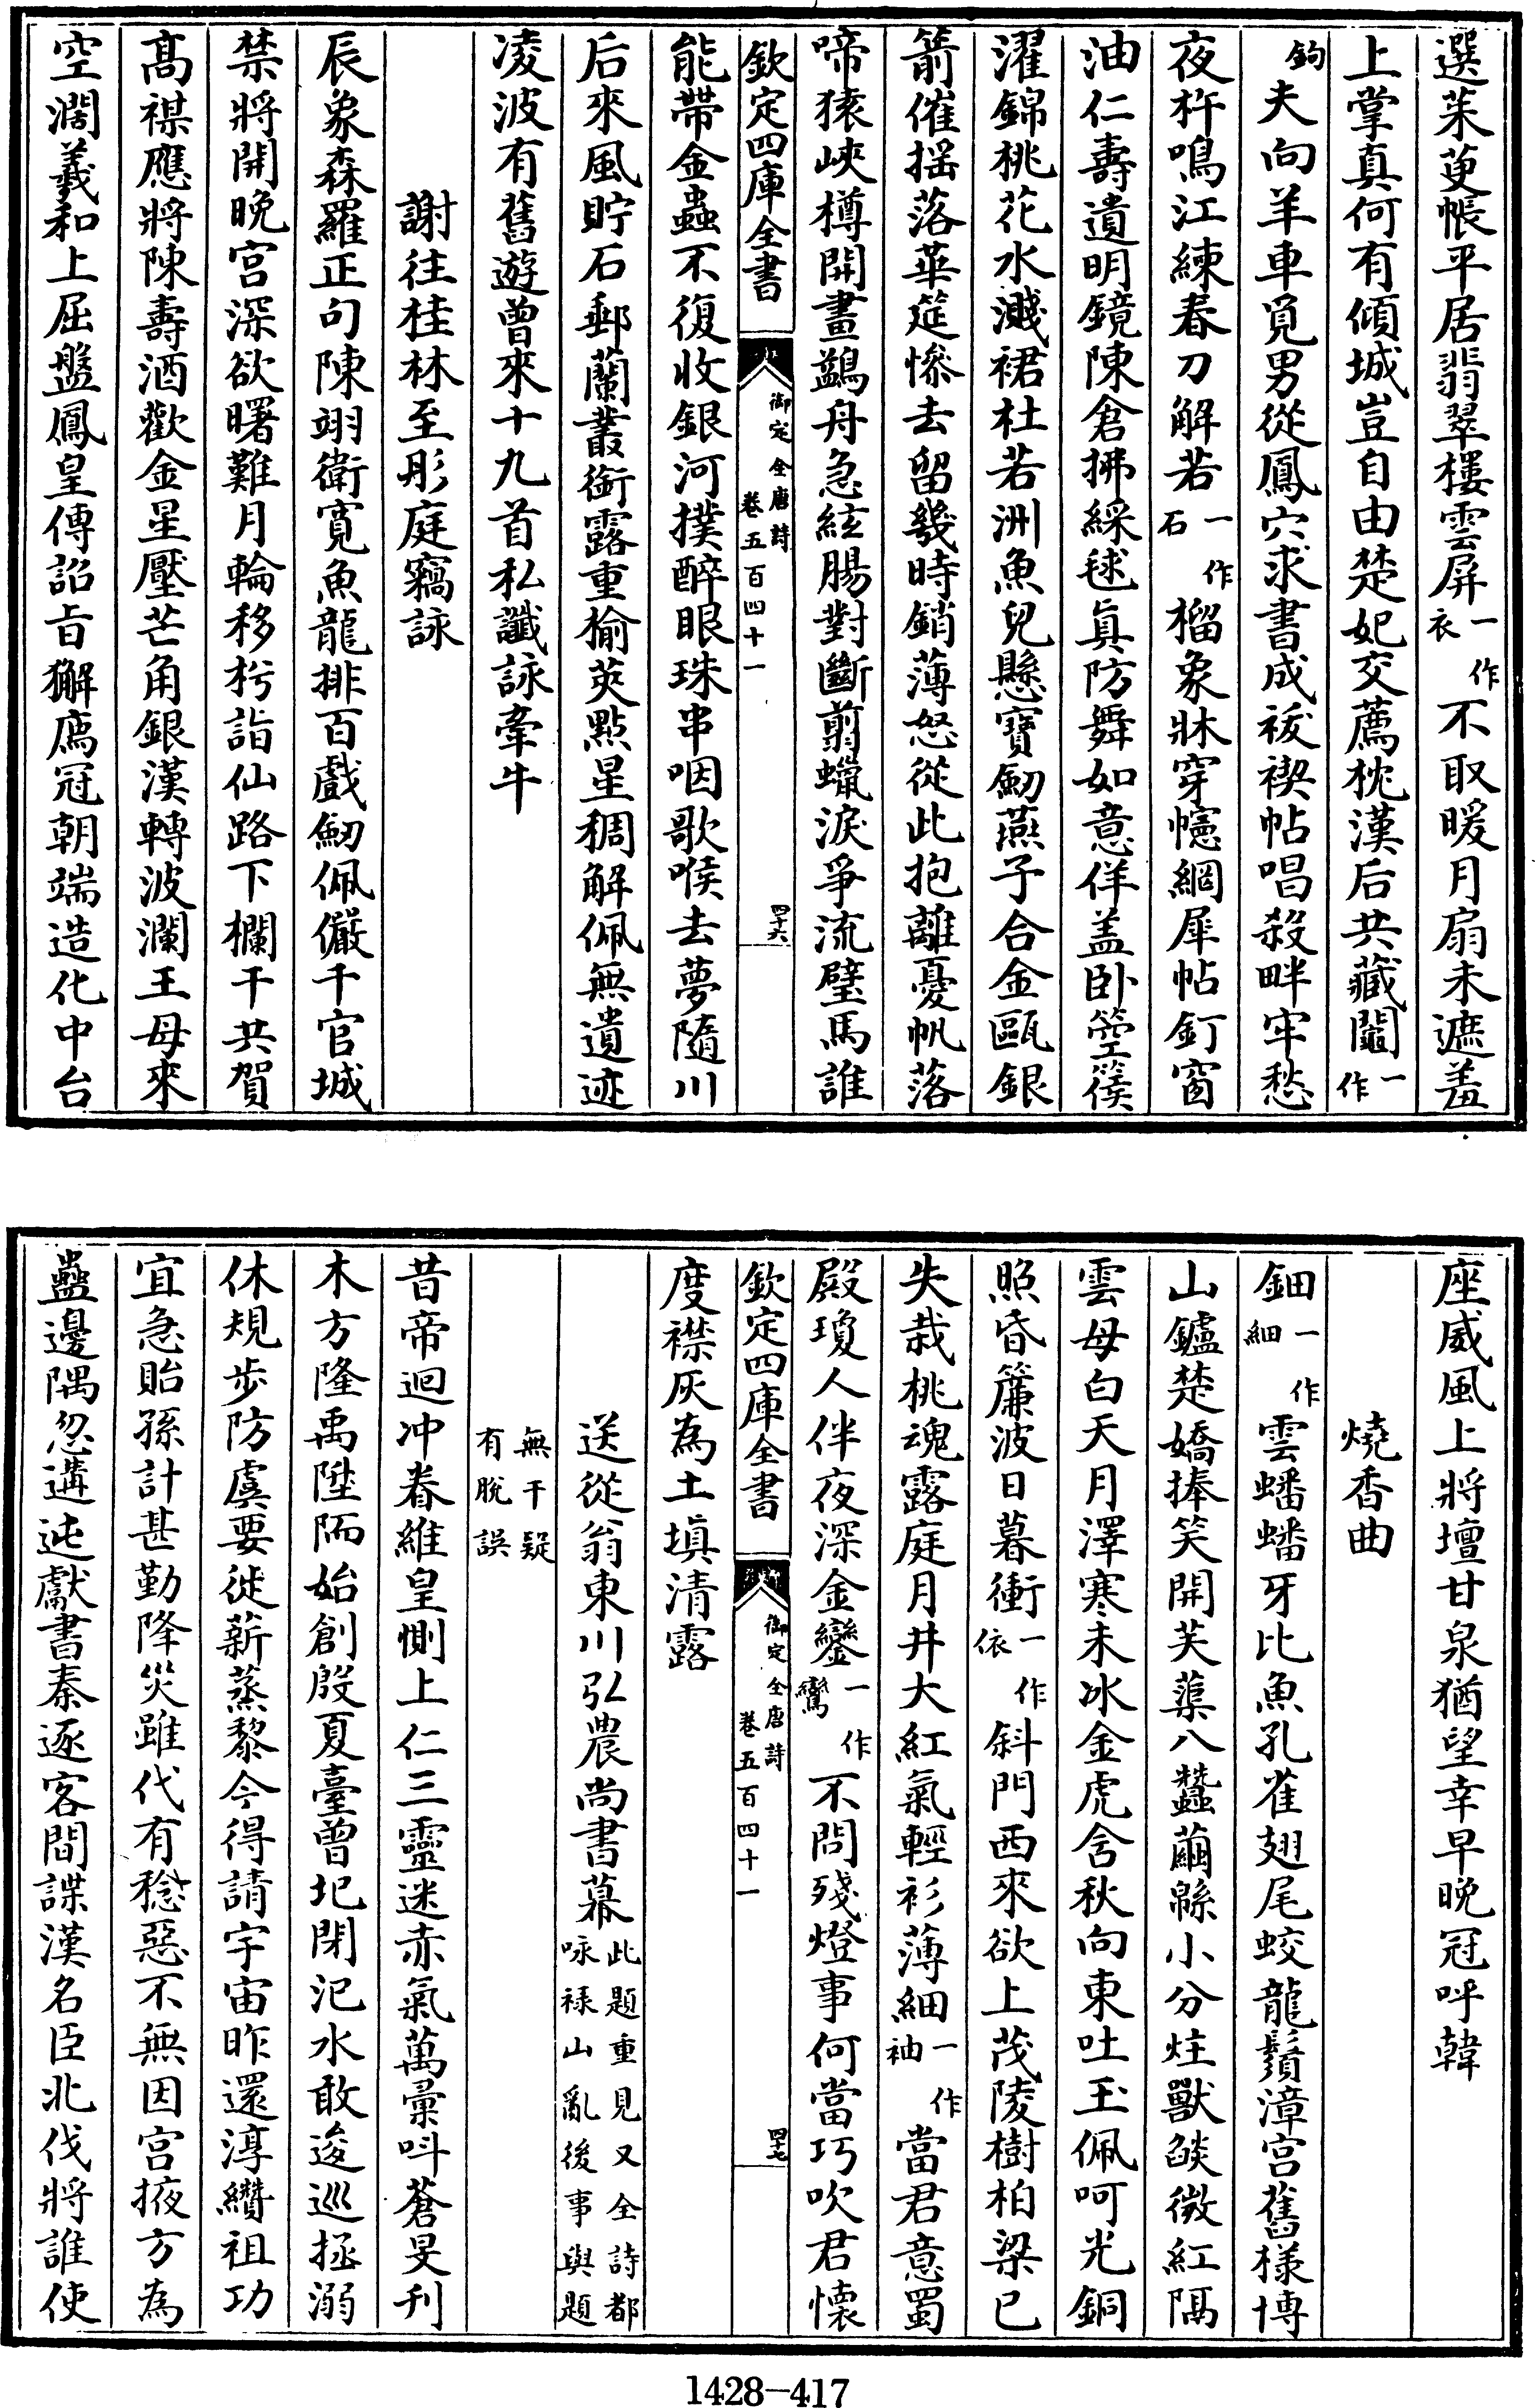 選茱萸帳平居翡翠樓雲屏一作衣不取暖月扇未遮羞
上掌真何有傾城豈自由楚妃交薦枕漢后共藏鬮一作
鉤夫向羊車覓男從鳳穴求書成祓禊帖唱殺畔牢愁
夜杵鳴江練春刀解若一作石榴象牀穿幰網犀帖釘窗
油仁壽遺明鏡陳倉拂綵毬真防舞如意佯盖卧箜篌
濯錦桃花水濺裙杜若洲魚兒懸寶劒燕子合金甌銀
箭催揺落華筵慘去留幾時銷薄怒從此抱離憂帆落
啼猿峽樽開畫鷁舟急絃腸對斷翦蠟淚爭流璧馬誰
欽定四庫全書
御定全唐詩
卷五百四十一
四十六
能帶金蟲不復收銀河撲醉眼珠串咽歌喉去夢隨川
后來風貯石郵蘭叢銜露重榆莢點星稠解佩無遺迹
凌波有舊遊曾來十九首私讖詠牽牛
謝往桂林至彤庭竊詠
辰象森羅正句陳翊衛寛魚龍排百戲劒佩儼千官城
禁將開晚宫深欲曙難月輪移枍詣仙路下欄干共賀
髙禖應將陳壽酒歡金星壓芒角銀漢轉波瀾王母來
空濶羲和上屈盤鳳皇傳詔旨獬廌冠朝端造化中台
座威風上將壇甘泉猶望幸早晚冠呼韓
燒香曲
鈿一作細雲蟠蟠牙比魚孔雀翅尾蛟龍鬚漳宫舊樣博
山鑪楚嬌捧笑開芙蕖八蠶繭緜小分炷獸燄微紅隔
雲母白天月澤寒未冰金虎含秋向東吐玉佩呵光銅
照昏簾波日暮衝一作依斜門西來欲上茂陵樹柏梁已
失栽桃魂露庭月井大紅氣輕衫薄細一作袖當君意蜀
殿瓊人伴夜深金鑾一作鸞不問殘燈事何當巧吹君懷
欽定四庫全書
御定全唐詩
卷五百四十一
四十七
度襟灰為土填清露
送從翁東川弘農尚書幕此題重見又全詩都咏禄山亂後事與題
無干疑有脫誤
昔帝迴冲眷維皇惻上仁三靈迷赤氣萬彚呌蒼旻刋
木方隆禹陞陑始創殷夏臺曾圮閉汜水敢逡巡拯溺
休規步防虞要徙薪蒸黎今得請宇宙昨還淳纘祖功
宜急貽孫計甚勤降災雖代有稔惡不無因宫掖方為
蠱邊隅忽遘迍獻書秦逐客間諜漢名臣北伐將誰使
1428—417